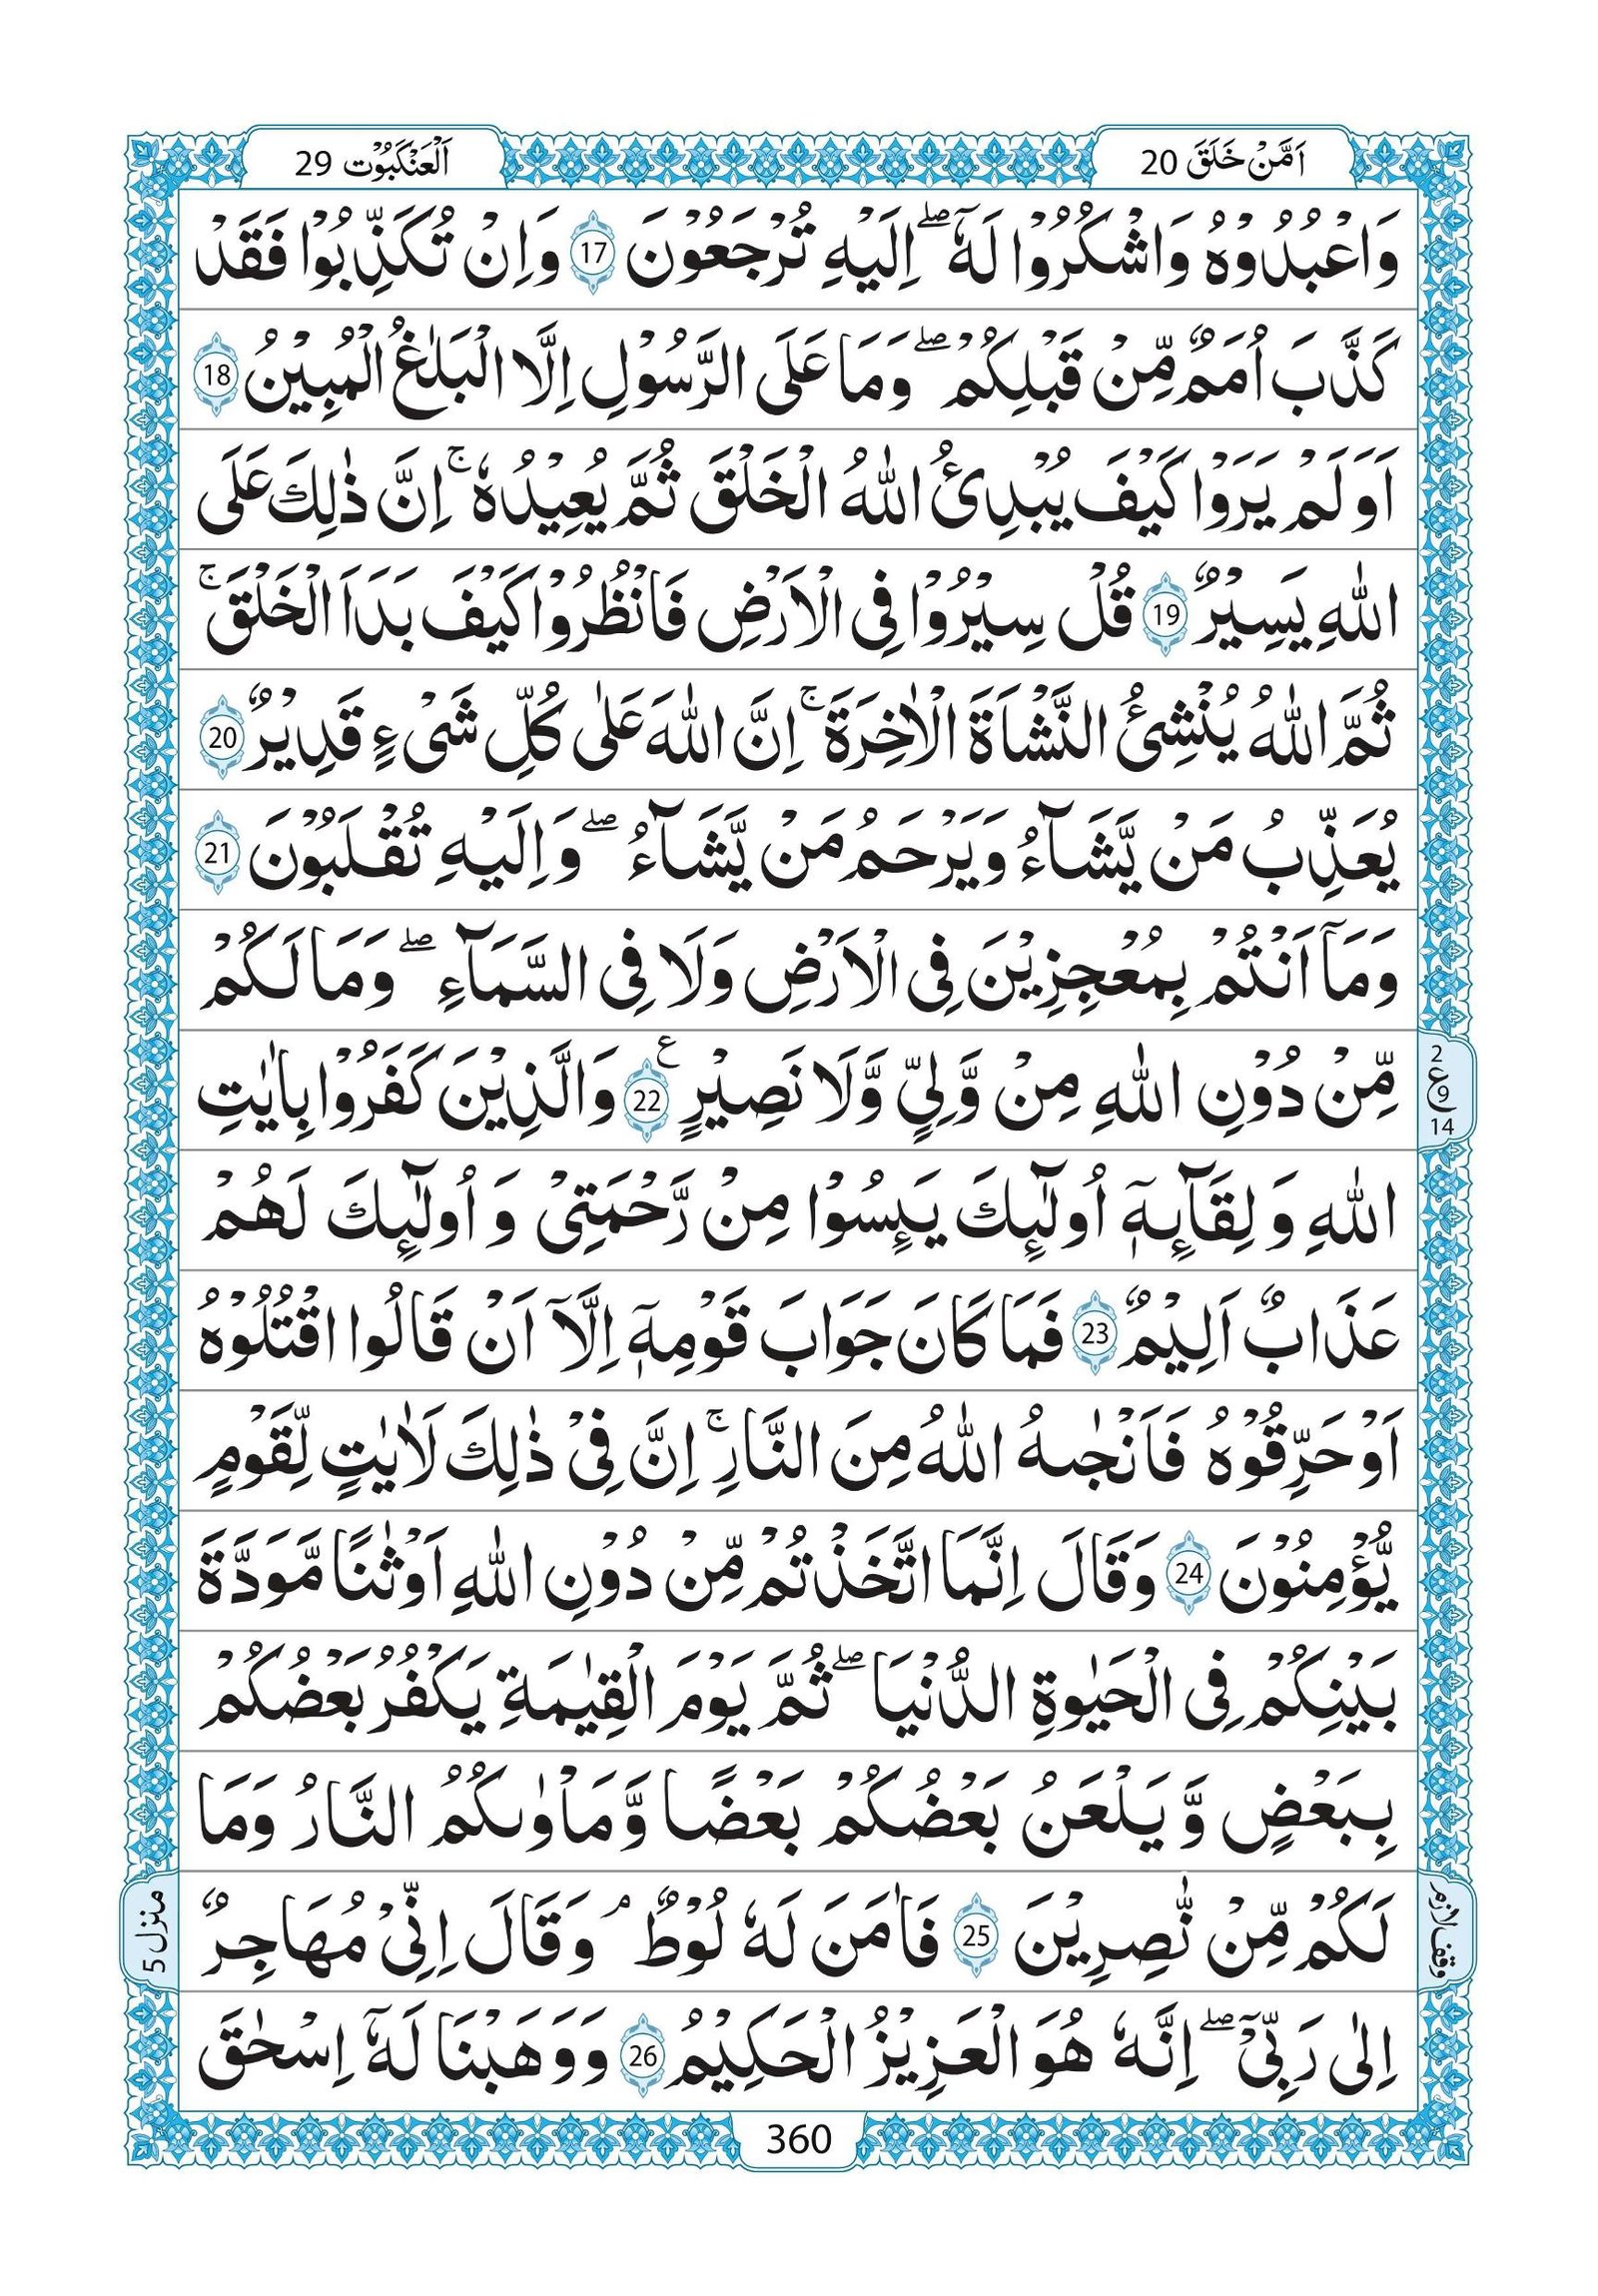 اَمَّنْ خَلَقَ 20
اَلْعَنْكَبُوْت 29
وَاعْبُدُوْهُ وَاشْكُرُوْا لَهٗ ؕۖ اِلَيْهِ تُرْجَعُوْنَ 17 وَاِنْ تُكَذِّبُوْا فَقَدْ
كَذَّبَ اُمَمٌ مِّنْ قَبْلِكُمْ ۖ وَمَا عَلَى الرَّسُوْلِ اِلَّا الْبَلٰغُ الْمُبِيْنُ 18
اَوَلَمْ يَرَوْا كَيْفَ يُبْدِئُ اللّٰهُ الْخَلْقَ ثُمَّ يُعِيْدُهٗ ۚ اِنَّ ذٰلِكَ عَلَى
اللّٰهِ يَسِيْرٌ 19 قُلْ سِيْرُوْا فِى الْاَرْضِ فَانْظُرُوْا كَيْفَ بَدَاَ الْخَلْقَ ۚ
ثُمَّ اللّٰهُ يُنْشِئُ النَّشْاَةَ الْاٰخِرَةَ ۚ اِنَّ اللّٰهَ عَلٰى كُلِّ شَىْءٍ قَدِيْرٌ 20
يُعَذِّبُ مَنْ يَّشَآءُ وَيَرْحَمُ مَنْ يَّشَآءُ ۖ وَاِلَيْهِ تُقْلَبُوْنَ 21
وَمَآ اَنْتُمْ بِمُعْجِزِيْنَ فِى الْاَرْضِ وَلَا فِى السَّمَآءِ ۖ وَمَا لَكُمْ
مِّنْ دُوْنِ اللّٰهِ مِنْ وَّلِيٍّ وَّلَا نَصِيْرٍ ع 22 وَالَّذِيْنَ كَفَرُوْا بِاٰيٰتِ
2
ع 9
14
اللّٰهِ وَ لِقَآىِٕهٖٓ اُولٰٓىِٕكَ يَىِٕسُوْا مِنْ رَّحْمَتِىْ وَ اُولٰٓىِٕكَ لَهُمْ
عَذَابٌ اَلِيْمٌ 23 فَمَا كَانَ جَوَابَ قَوْمِهٖٓ اِلَّآ اَنْ قَالُوا اقْتُلُوْهُ
اَوْ حَرِّقُوْهُ فَاَنْجٰىهُ اللّٰهُ مِنَ النَّارِ ۚ اِنَّ فِىْ ذٰلِكَ لَاٰيٰتٍ لِّقَوْمٍ
يُّؤْمِنُوْنَ 24 وَقَالَ اِنَّمَا اتَّخَذْتُمْ مِّنْ دُوْنِ اللّٰهِ اَوْثٰنًا مَّوَدَّةَ
بَيْنِكُمْ فِى الْحَيٰوةِ الدُّنْيَا ۖ ثُمَّ يَوْمَ الْقِيٰمَةِ يَكْفُرُ بَعْضُكُمْ
بِبَعْضٍ وَّ يَلْعَنُ بَعْضُكُمْ بَعْضًا وَّمَاْوٰىكُمُ النَّارُ وَمَا
لَكُمْ مِّنْ نّٰصِرِيْنَ 25 فَاٰمَنَ لَهٗ لُوْطٌ ۘ وَقَالَ اِنِّىْ مُهَاجِرٌ
وقف لازم
منزل 5
اِلٰى رَبِّىْٓ ۖ اِنَّهٗ هُوَ الْعَزِيْزُ الْحَكِيْمُ 26 وَوَهَبْنَا لَهٗٓ اِسْحٰقَ
360